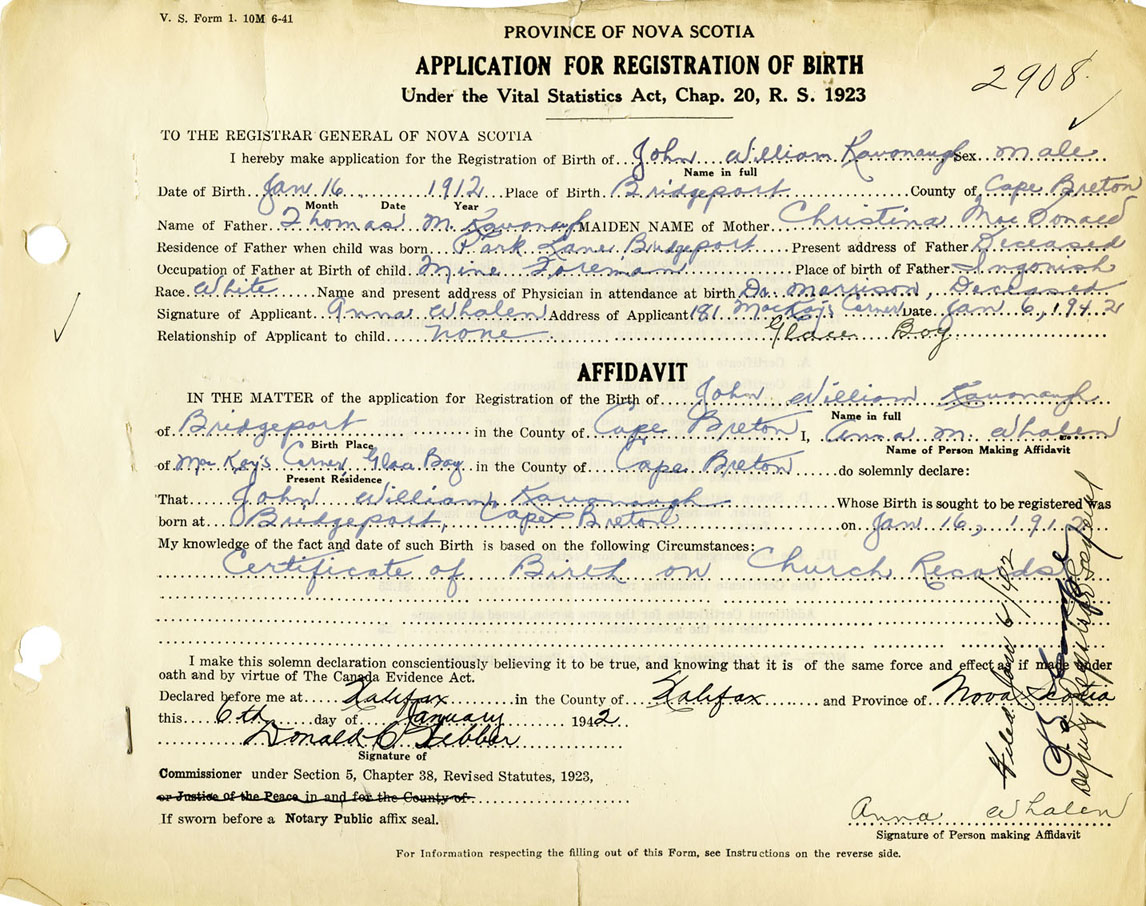 V. S. Form 1. 10M 6-41
PROVINCE OF NOVA SCOTIA
APPLICATION FOR REGISTRATION OF BIRTH
Under the Vital Statistics Act, Chap. 20, R. S. 1923
2908
TO THE REGISTRAR GENERAL OF NOVA SCOTIA
I hereby make application for the Registration of Birth of John William Kavonaugh Sex male
Name in full
Date of Birth Jan 16 1912 Place of Birth Bridgeport County of Cape Breton
Month Date Year
Name of Father Thomas M. Kavonaugh MAIDEN NAME of Mother Christina MacDonald
Residence of Father when child was born Park Lane, Bridgeport Present address of Father Deceased
Occupation of Father at Birth of child Mine Foreman Place of birth of Father Ingonish
Race White Name and present address of Physician in attendance at birth Dr. Morrison, Deceased
Signature of Applicant Anna Whalen Address of Applicant 181 MacKay's Corner Date Jan 6, 1942
Relationship of Applicant to child none Glace Bay
AFFIDAVIT
IN THE MATTER of the application for Registration of the Birth of John William Kavonaugh
Name in full
of Bridgeport in the County of Cape Breton I, Anna M. Whalen
Birth Place Name of Person Making Affidavit
of MacKay's Corner, Glace Bay in the County of Cape Breton do solemnly declare:
Present Residence
That John William Kavonaugh Whose Birth is sought to be registered was
born at Bridgeport, Cape Breton on Jan 16, 1912
My knowledge of the fact and date of such Birth is based on the following Circumstances:
Certificate of Birth on Church Records
I make this solemn declaration conscientiously believing it to be true, and knowing that it is of the same force and effect as if made under
oath and by virtue of The Canada Evidence Act.
Declared before me at Halifax in the County of Halifax and Province of Nova Scotia
this 6th day of January 1942
Donald C
Signature of
Commissioner under Section 5, Chapter 38, Revised Statutes, 1923,
or Justice of the Peace in and for the County of
If sworn before a Notary Public affix seal.
Filed Jan 6/42
Deputy Registrar General
Anna Whalen
Signature of Person making Affidavit
For Information respecting the filling out of this Form, see Instructions on the reverse side.